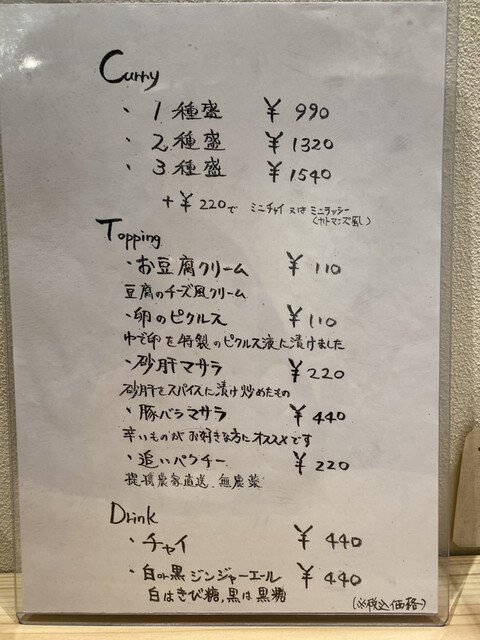 Curry
・1種盛 ¥990
・2種盛 ¥1320
・3種盛 ¥1540
+¥220で ミニチャイ 又は ミニラッシー
(カトマンズ風)
Topping
・お豆腐クリーム ¥110
豆腐のチーズ風クリーム
・卵のピクルス ¥110
ゆで卵を特製のピクルス液に漬けました
・砂肝マサラ ¥220
砂肝をスパイスに漬け炒めたもの
・豚バラマサラ ¥440
辛いものがお好きな方にオススメです
・追いパクチー ¥220
農家直送、無農薬
Drink
・チャイ ¥440
・白or黒 ジンジャーエール ¥440
白はきび糖,黒は黒糖
(※税込価格)